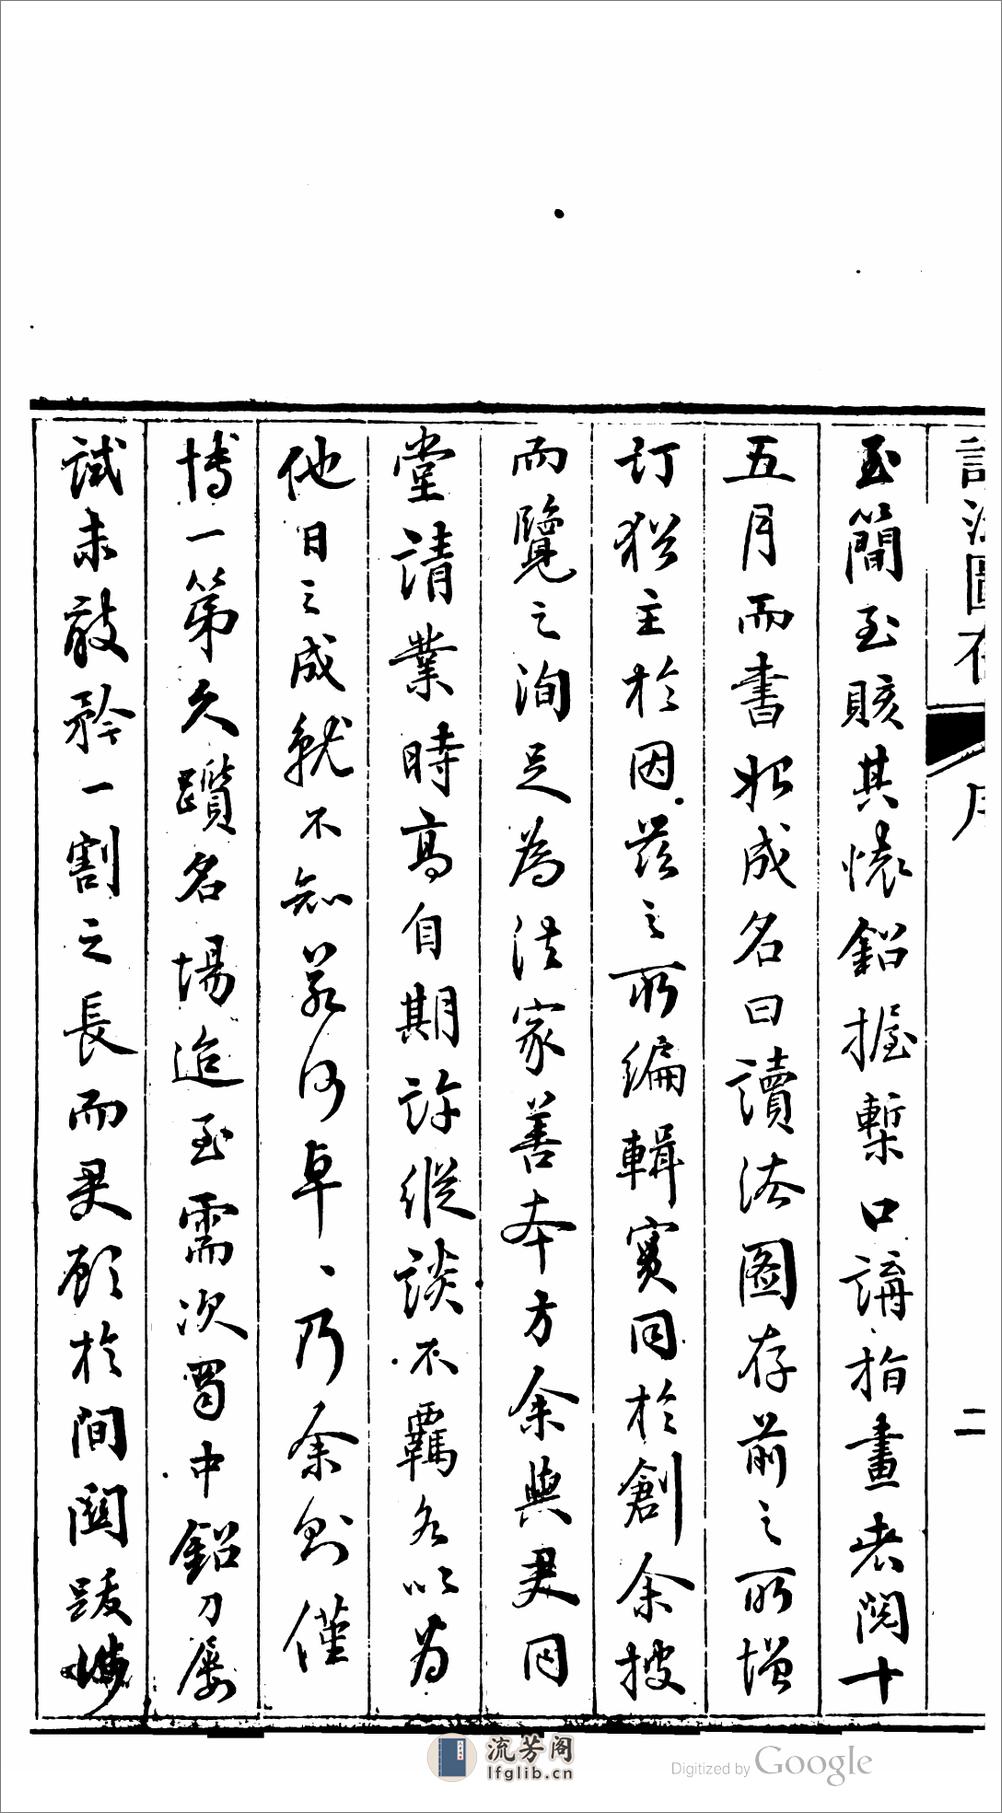 讀法圖存
序
二
至簡至賅其懷鉛握槧口講指畫者閱十
五月而書始成名曰讀法圖存前之所增
訂猶主於因茲之所編輯實同於創余披
而覽之洵足為法家善本方余與君同
堂請業時高自期許縱談不羈各以為
他日之成就不知若何卓〻乃余則僅
博一第久躓名場迨至需次蜀中鉛刀屢
試未敢矜一割之長而君顧於間關跋涉
流芳阁
lfglib.cn
Digitized by Google